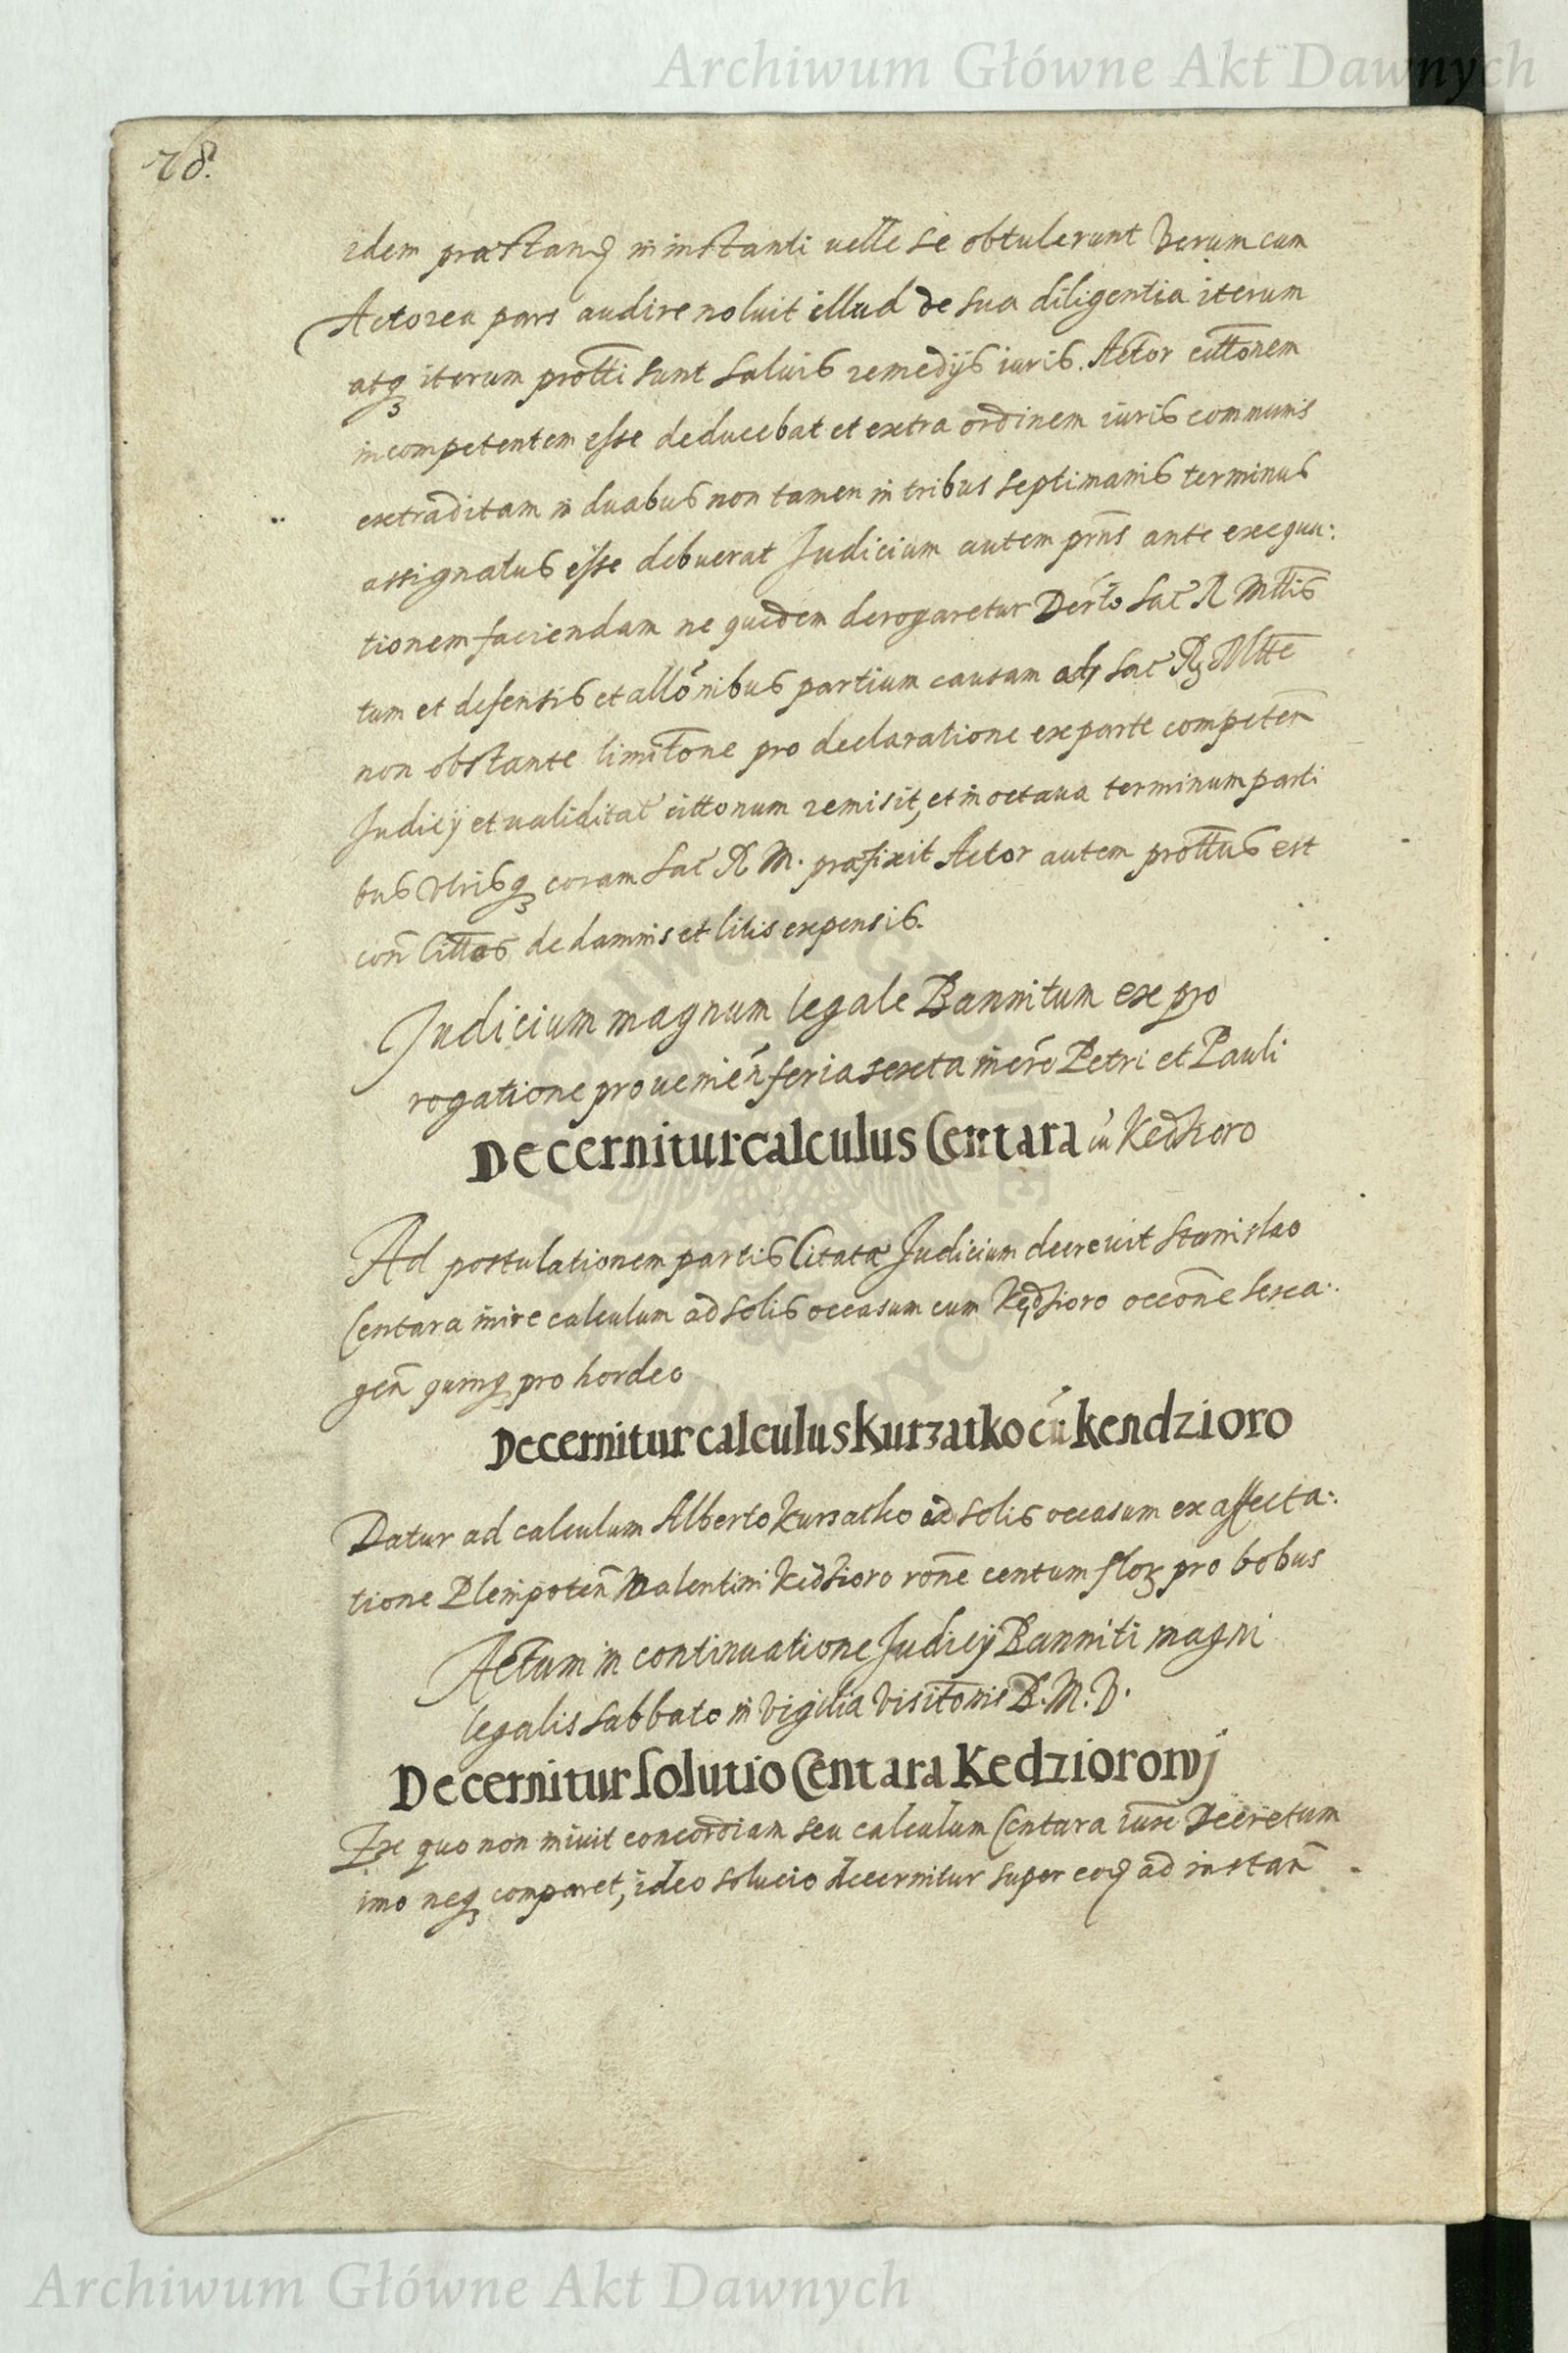 Archiwum Główne Akt Dawnych
78.
idem præstanꝗ in instanti uelle se obtulerunt Verum cum
Actorea pars audire noluit illud de sua diligentia iterum
atqꝫ iterum protti sunt saluis remedijs iuris. Actor cittonem
incompetentem esse deducebat et extra ordinem iuris communis
extraditam in duabus non tamen in tribus septimanis terminus
assignatus esse debuerat Judicium autem prns ante exequu:
tionem faciendam ne quidem derogaretur Derto Sac R Mttis
tum et defensis et allonibus partium causam ad Sac R Mtte
non obstante limitone pro declaratione ex parte competen
Judicij et ualiditat cittonum remisit, et in octaua terminum parti
bus vtrisqꝫ coram Sac R M. præfixit Actor autem prottus est
con Cittos de damnis et litis expensis.
Judicium magnum legale Bannitum ex pro
rogatione prouenien feria sexta in cro Petri et Pauli
Decernitur calculus Centara cu Kedzioro
Ad postulationem partis Citatæ Judicium decreuit Stanislao
Centara inire calculum ad solis occasum cum Kędzioro occone sexa:
gen quinqꝫ pro hordeo
Decernitur calculus Kurzatko cu Kendzioro
Datur ad calculum Alberto Kurzatko ad solis occasum ex affecta:
tione Plenipoten Valentini Kedzioro rone centum floꝝ pro bobus
Actum in continuatione Judicij Banniti magni
legalis Sabbato in Vigilia Visitonis B. M. V.
Decernitur solutio Centara Kedziorowj
Ex quo non iniuit concordiam seu calculum Centara iuxe Decretum
imo neqꝫ comparet, ideo solucio decernitur super eoꝗ ad instan
Archiwum Główne Akt Dawnych